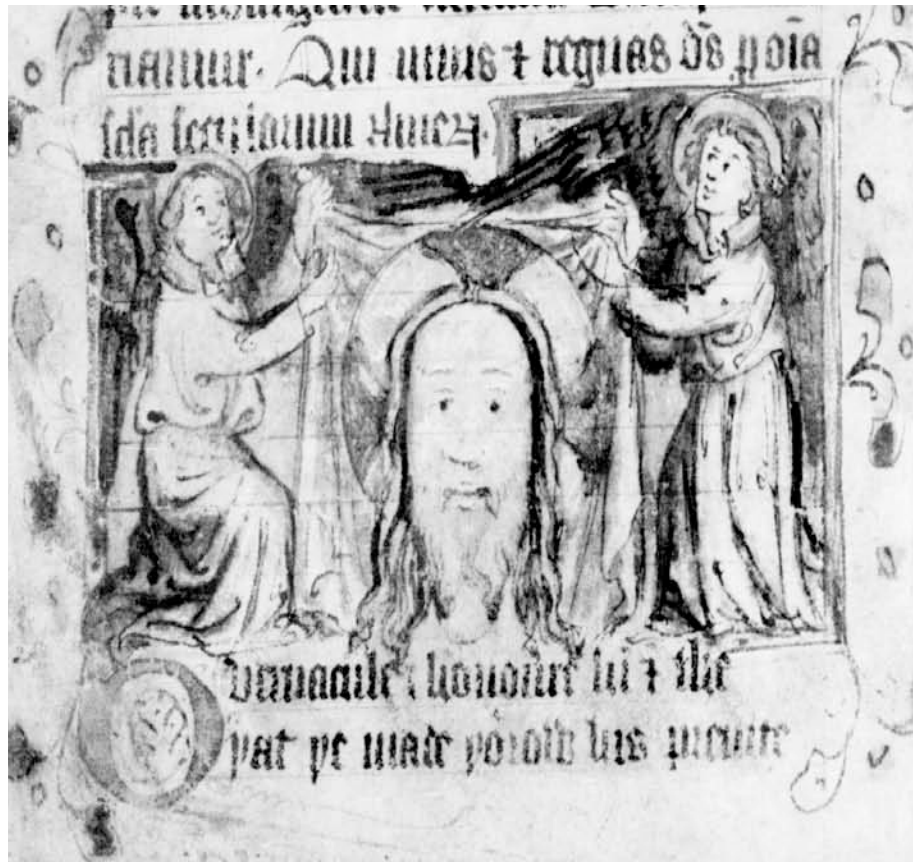 namur. Qui uiuis ⁊ regnas d̄s p oīa
scl̄a seculorum Amen.
O vernacule i honoure hī ⁊ the
þat þe made þorow his preuite